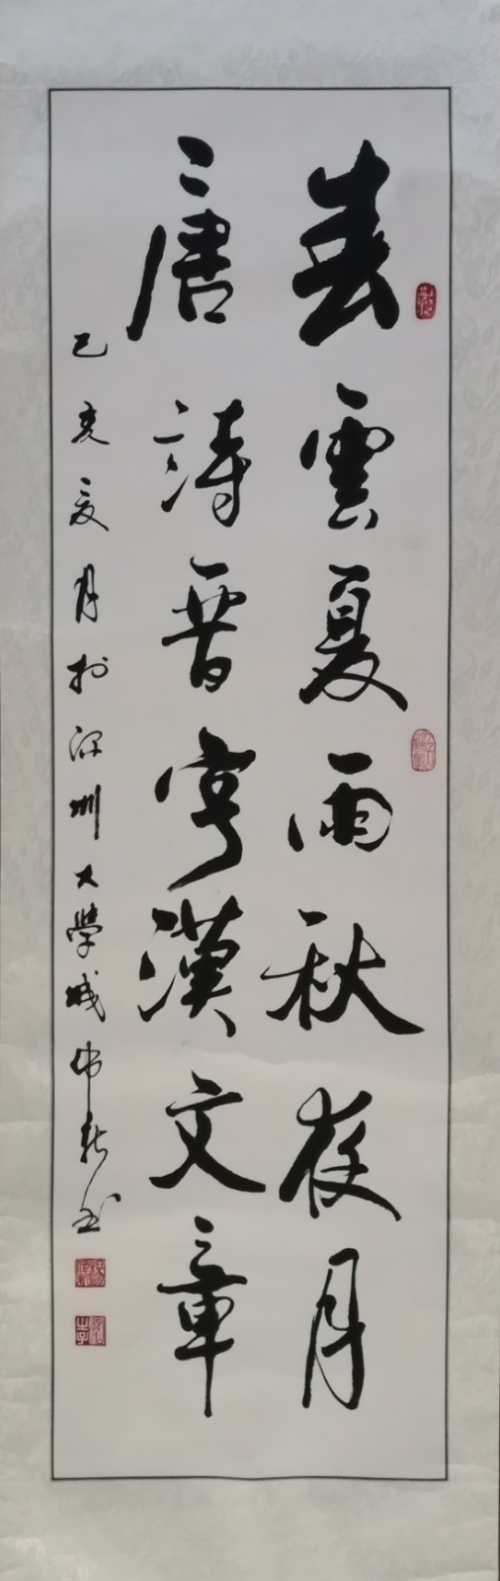 春雲夏雨秋夜月
唐詩晋字漢文章
己亥夏月於深圳大學城新书